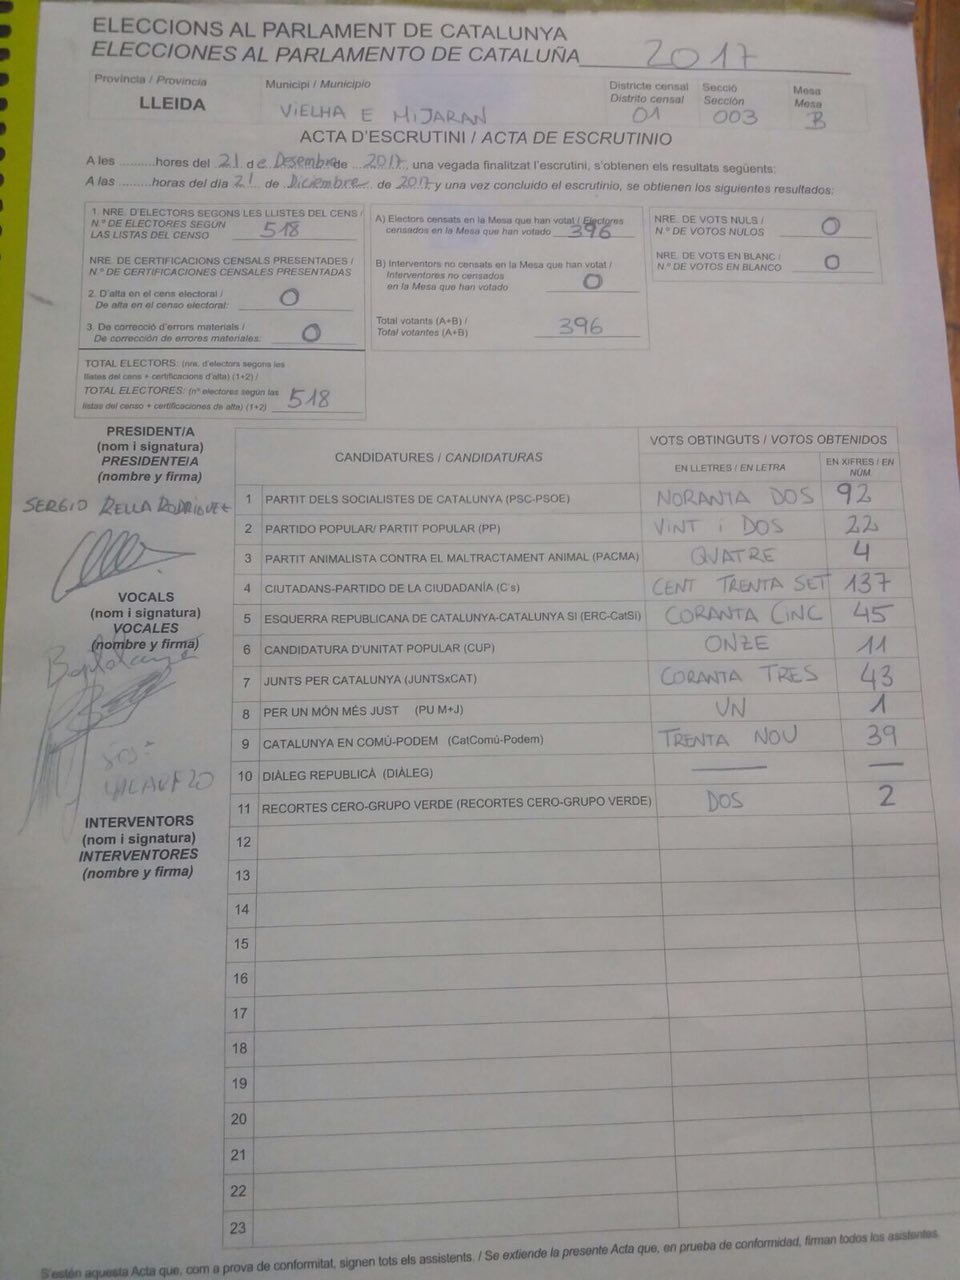 ELECCIONS AL PARLAMENT DE CATALUNYA
ELECCIONES AL PARLAMENTO DE CATALUÑA 2017
Província / Provincia
LLEIDA
Municipi / Municipio
VIELHA E MIJARAN
Districte censal
Distrito censal
01
Secció
Sección
003
Mesa
Mesa
B
ACTA D'ESCRUTINI / ACTA DE ESCRUTINIO
A les .........hores del 21 de Desembre de 2017, una vegada finalitzat l'escrutini, s'obtenen els resultats següents:
A las .........horas del día 21 de Diciembre de 2017 y una vez concluido el escrutinio, se obtienen los siguientes resultados:
1. NRE. D'ELECTORS SEGONS LES LLISTES DEL CENS /
N.º DE ELECTORES SEGÚN
LAS LISTAS DEL CENSO 518
NRE. DE CERTIFICACIONS CENSALS PRESENTADES /
N.º DE CERTIFICACIONES CENSALES PRESENTADAS
2. D'alta en el cens electoral /
De alta en el censo electoral: 0
3. De correcció d'errors materials /
De corrección de errores materiales: 0
TOTAL ELECTORS: (nre. d'electors segons les
llistes del cens + certificacions d'alta) (1+2) /
TOTAL ELECTORES: (nº electores según las
listas del censo + certificaciones de alta) (1+2) 518
A) Electors censats en la Mesa que han votat / Electores
censados en la Mesa que han votado 396
B) Interventors no censats en la Mesa que han votat /
Interventores no censados
en la Mesa que han votado 0
Total votants (A+B) /
Total votantes (A+B) 396
NRE. DE VOTS NULS /
N.º DE VOTOS NULOS 0
NRE. DE VOTS EN BLANC /
N.º DE VOTOS EN BLANCO 0
PRESIDENT/A
(nom i signatura)
PRESIDENTE/A
(nombre y firma)
SERGIO RELLA RODRIGUEZ
VOCALS
(nom i signatura)
VOCALES
(nombre y firma)
INTERVENTORS
(nom i signatura)
INTERVENTORES
(nombre y firma)
CANDIDATURES / CANDIDATURAS
VOTS OBTINGUTS / VOTOS OBTENIDOS
EN LLETRES / EN LETRA
EN XIFRES / EN NÚM.
1 PARTIT DELS SOCIALISTES DE CATALUNYA (PSC-PSOE) NORANTA DOS 92
2 PARTIDO POPULAR/ PARTIT POPULAR (PP) VINT i DOS 22
3 PARTIT ANIMALISTA CONTRA EL MALTRACTAMENT ANIMAL (PACMA) QUATRE 4
4 CIUTADANS-PARTIDO DE LA CIUDADANÍA (C's) CENT TRENTA SET 137
5 ESQUERRA REPUBLICANA DE CATALUNYA-CATALUNYA SI (ERC-CatSí) CORANTA CINC 45
6 CANDIDATURA D'UNITAT POPULAR (CUP) ONZE 11
7 JUNTS PER CATALUNYA (JUNTSxCAT) CORANTA TRES 43
8 PER UN MÓN MÉS JUST (PU M+J) UN 1
9 CATALUNYA EN COMÚ-PODEM (CatComú-Podem) TRENTA NOU 39
10 DIÀLEG REPUBLICÀ (DIÀLEG) — —
11 RECORTES CERO-GRUPO VERDE (RECORTES CERO-GRUPO VERDE) DOS 2
12
13
14
15
16
17
18
19
20
21
22
23
S'estén aquesta Acta que, com a prova de conformitat, signen tots els assistents. / Se extiende la presente Acta que, en prueba de conformidad, firman todos los asistentes.